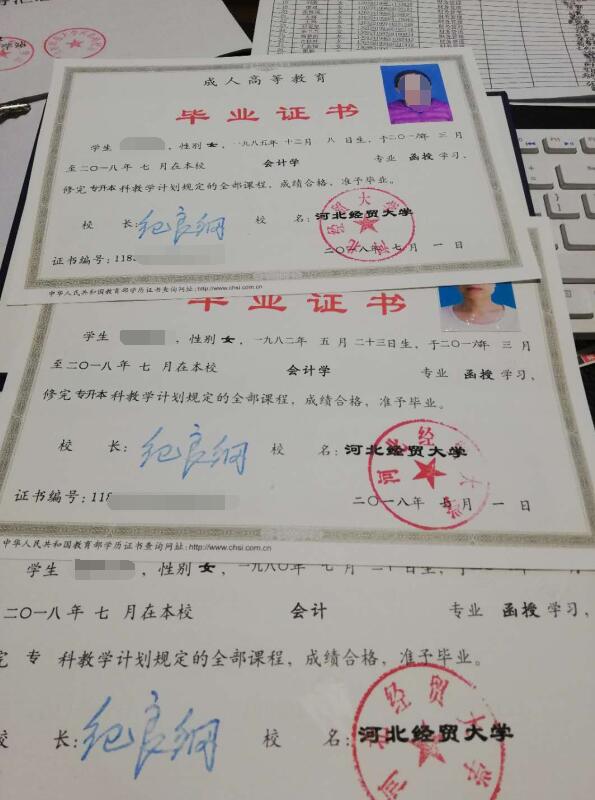 成人高等教育
毕业证书
学生 ，性别 女，一九八五年 十二月 八 日生，于二〇一六年 三 月
至二〇一八年 七 月在本校 会计学 专业 函授 学习，
修完 专升本 科教学计划规定的全部课程，成绩合格，准予毕业。
校 长：纪良纲 校 名：河北经贸大学
二〇一八年 七 月 一 日
证书编号：118
中华人民共和国教育部学历证书查询网址：http://www.chsi.com.cn
毕业证书
学生 ，性别 女，一九八二年 五 月 二十三日生，于二〇一六年 三 月
至二〇一八年 七 月在本校 会计学 专业 函授 学习，
修完 专升本 科教学计划规定的全部课程，成绩合格，准予毕业。
校 长：纪良纲 校 名：河北经贸大学
证书编号：118 二〇一八年 七 月 一 日
中华人民共和国教育部学历证书查询网址：http://www.chsi.com.cn
学生 ，性别 女，一九八〇年 七 月 二十日生，于二〇一
二〇一八年 七 月在本校 会计 专业 函授 学习，
完 专 科教学计划规定的全部课程，成绩合格，准予毕业。
校 长：纪良纲 校 名：河北经贸大学